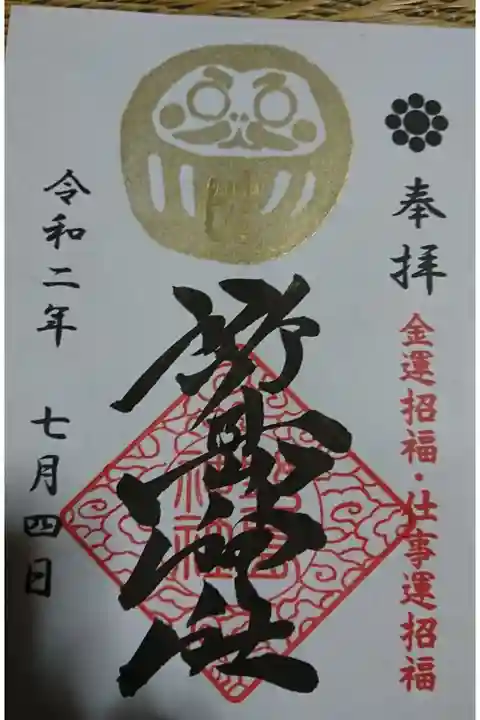 奉拝
金運招福・仕事運招福
神社
令和二年 七月四日